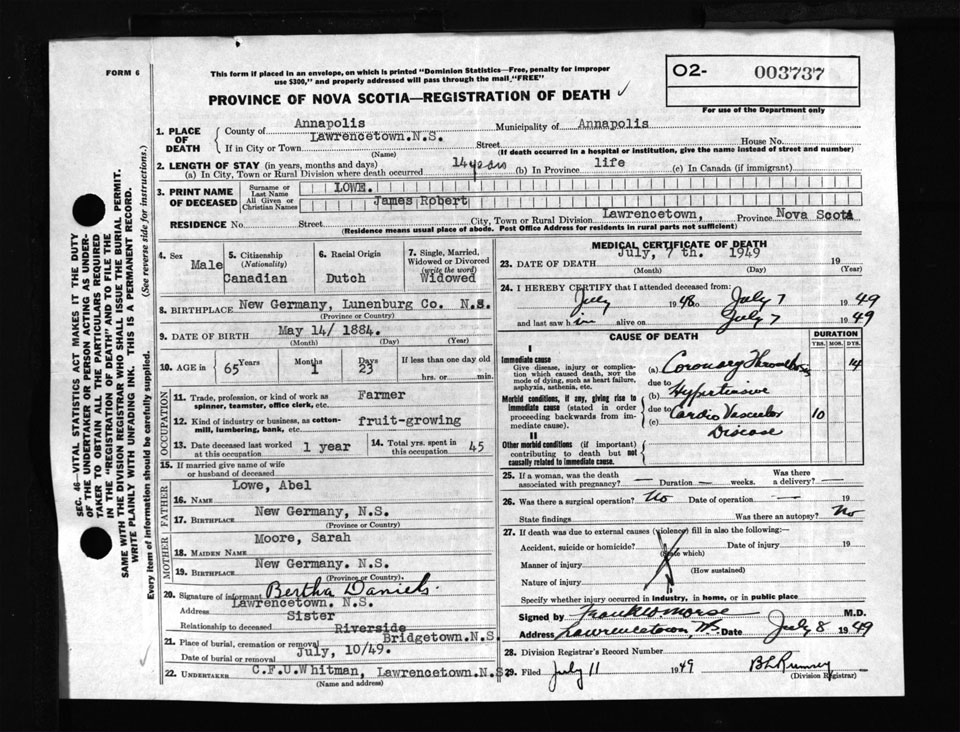 FORM 6
This form if placed in an envelope, on which is printed "Dominion Statistics—Free, penalty for improper
use $300," and properly addressed will pass through the mail "FREE"
O2- 003737
For use of the Department only
PROVINCE OF NOVA SCOTIA—REGISTRATION OF DEATH
1. PLACE OF DEATH
County of Annapolis Municipality of Annapolis
If in City or Town Lawrencetown.N.S. Street House No.
(Name) (If death occurred in a hospital or institution, give the name instead of street and number)
2. LENGTH OF STAY (in years, months and days)
(a) In City, Town or Rural Division where death occurred 14 years (b) In Province life (c) In Canada (if immigrant)
3. PRINT NAME OF DECEASED
Surname or Last Name LOWE.
All Given or Christian Names James Robert
RESIDENCE No. Street City, Town or Rural Division Lawrencetown, Province Nova Scota
(Residence means usual place of abode. Post Office Address for residents in rural parts not sufficient)
4. Sex Male
5. Citizenship (Nationality) Canadian
6. Racial Origin Dutch
7. Single, Married, Widowed or Divorced (write the word) Widowed
8. BIRTHPLACE New Germany, Lunenburg Co. N.S.
(Province or Country)
9. DATE OF BIRTH May 14/ 1884.
(Month) (Day) (Year)
10. AGE in 65 Years Months 1 Days 23 If less than one day old
hrs. or min.
OCCUPATION
11. Trade, profession, or kind of work as spinner, teamster, office clerk, etc. Farmer
12. Kind of industry or business, as cotton-mill, lumbering, bank, etc. fruit-growing
13. Date deceased last worked at this occupation 1 year
14. Total yrs. spent in this occupation 45
15. If married give name of wife or husband of deceased
FATHER
16. NAME Lowe, Abel
17. BIRTHPLACE New Germany, N.S.
(Province or Country)
MOTHER
18. MAIDEN NAME Moore, Sarah
19. BIRTHPLACE New Germany. N.S.
(Province or Country).
20. Signature of informant Bertha Daniels.
Address Lawrencetown. N.S.
Relationship to deceased Sister
21. Place of burial, cremation or removal Riverside Bridgetown.N.S.
Date of burial or removal July, 10/49.
22. UNDERTAKER C.F.U.Whitman, Lawrencetown.N.S.
(Name and address)
MEDICAL CERTIFICATE OF DEATH
23. DATE OF DEATH July, 7 th. 1949 19
(Month) (Day) (Year)
24. I HEREBY CERTIFY that I attended deceased from:
July 1948 to July 7 1949
and last saw him alive on July 7 1949
CAUSE OF DEATH
DURATION
YRS. MOS. DYS.
I
Immediate cause
Give disease, injury or complication which caused death, NOT the mode of dying, such as heart failure, asphyxia, asthenia, etc.
(a) Coronary Thrombosis 14
due to
Morbid conditions, if any, giving rise to immediate cause (stated in order proceeding backwards from immediate cause).
(b) Hypertensive
due to Cardio Vascular 10
(c) Disease
II
Other morbid conditions (if important) contributing to death but not causally related to immediate cause.
25. If a woman, was the death associated with pregnancy? — Duration — weeks. Was there a delivery? —
26. Was there a surgical operation? No Date of operation — 19
State findings Was there an autopsy? No
27. If death was due to external causes (violence) fill in also the following:—
Accident, suicide or homicide? (State which) Date of injury 19
Manner of injury (How sustained)
Nature of injury
Specify whether injury occurred in industry, in home, or in public place
Signed by Frank W Morse M.D.
Address Lawrencetown, N.S. Date July 8 1949
28. Division Registrar's Record Number
29. Filed July 11 1949
(Division Registrar)
SEC. 46—VITAL STATISTICS ACT MAKES IT THE DUTY
OF THE UNDERTAKER OR PERSON ACTING AS UNDER-
TAKER TO OBTAIN ALL THE PARTICULARS REQUIRED
IN THE "REGISTRATION OF DEATH" AND TO FILE THE
SAME WITH THE DIVISION REGISTRAR WHO SHALL ISSUE THE BURIAL PERMIT.
WRITE PLAINLY WITH UNFADING INK. THIS IS A PERMANENT RECORD.
Every item of information should be carefully supplied. (See reverse side for instructions.)